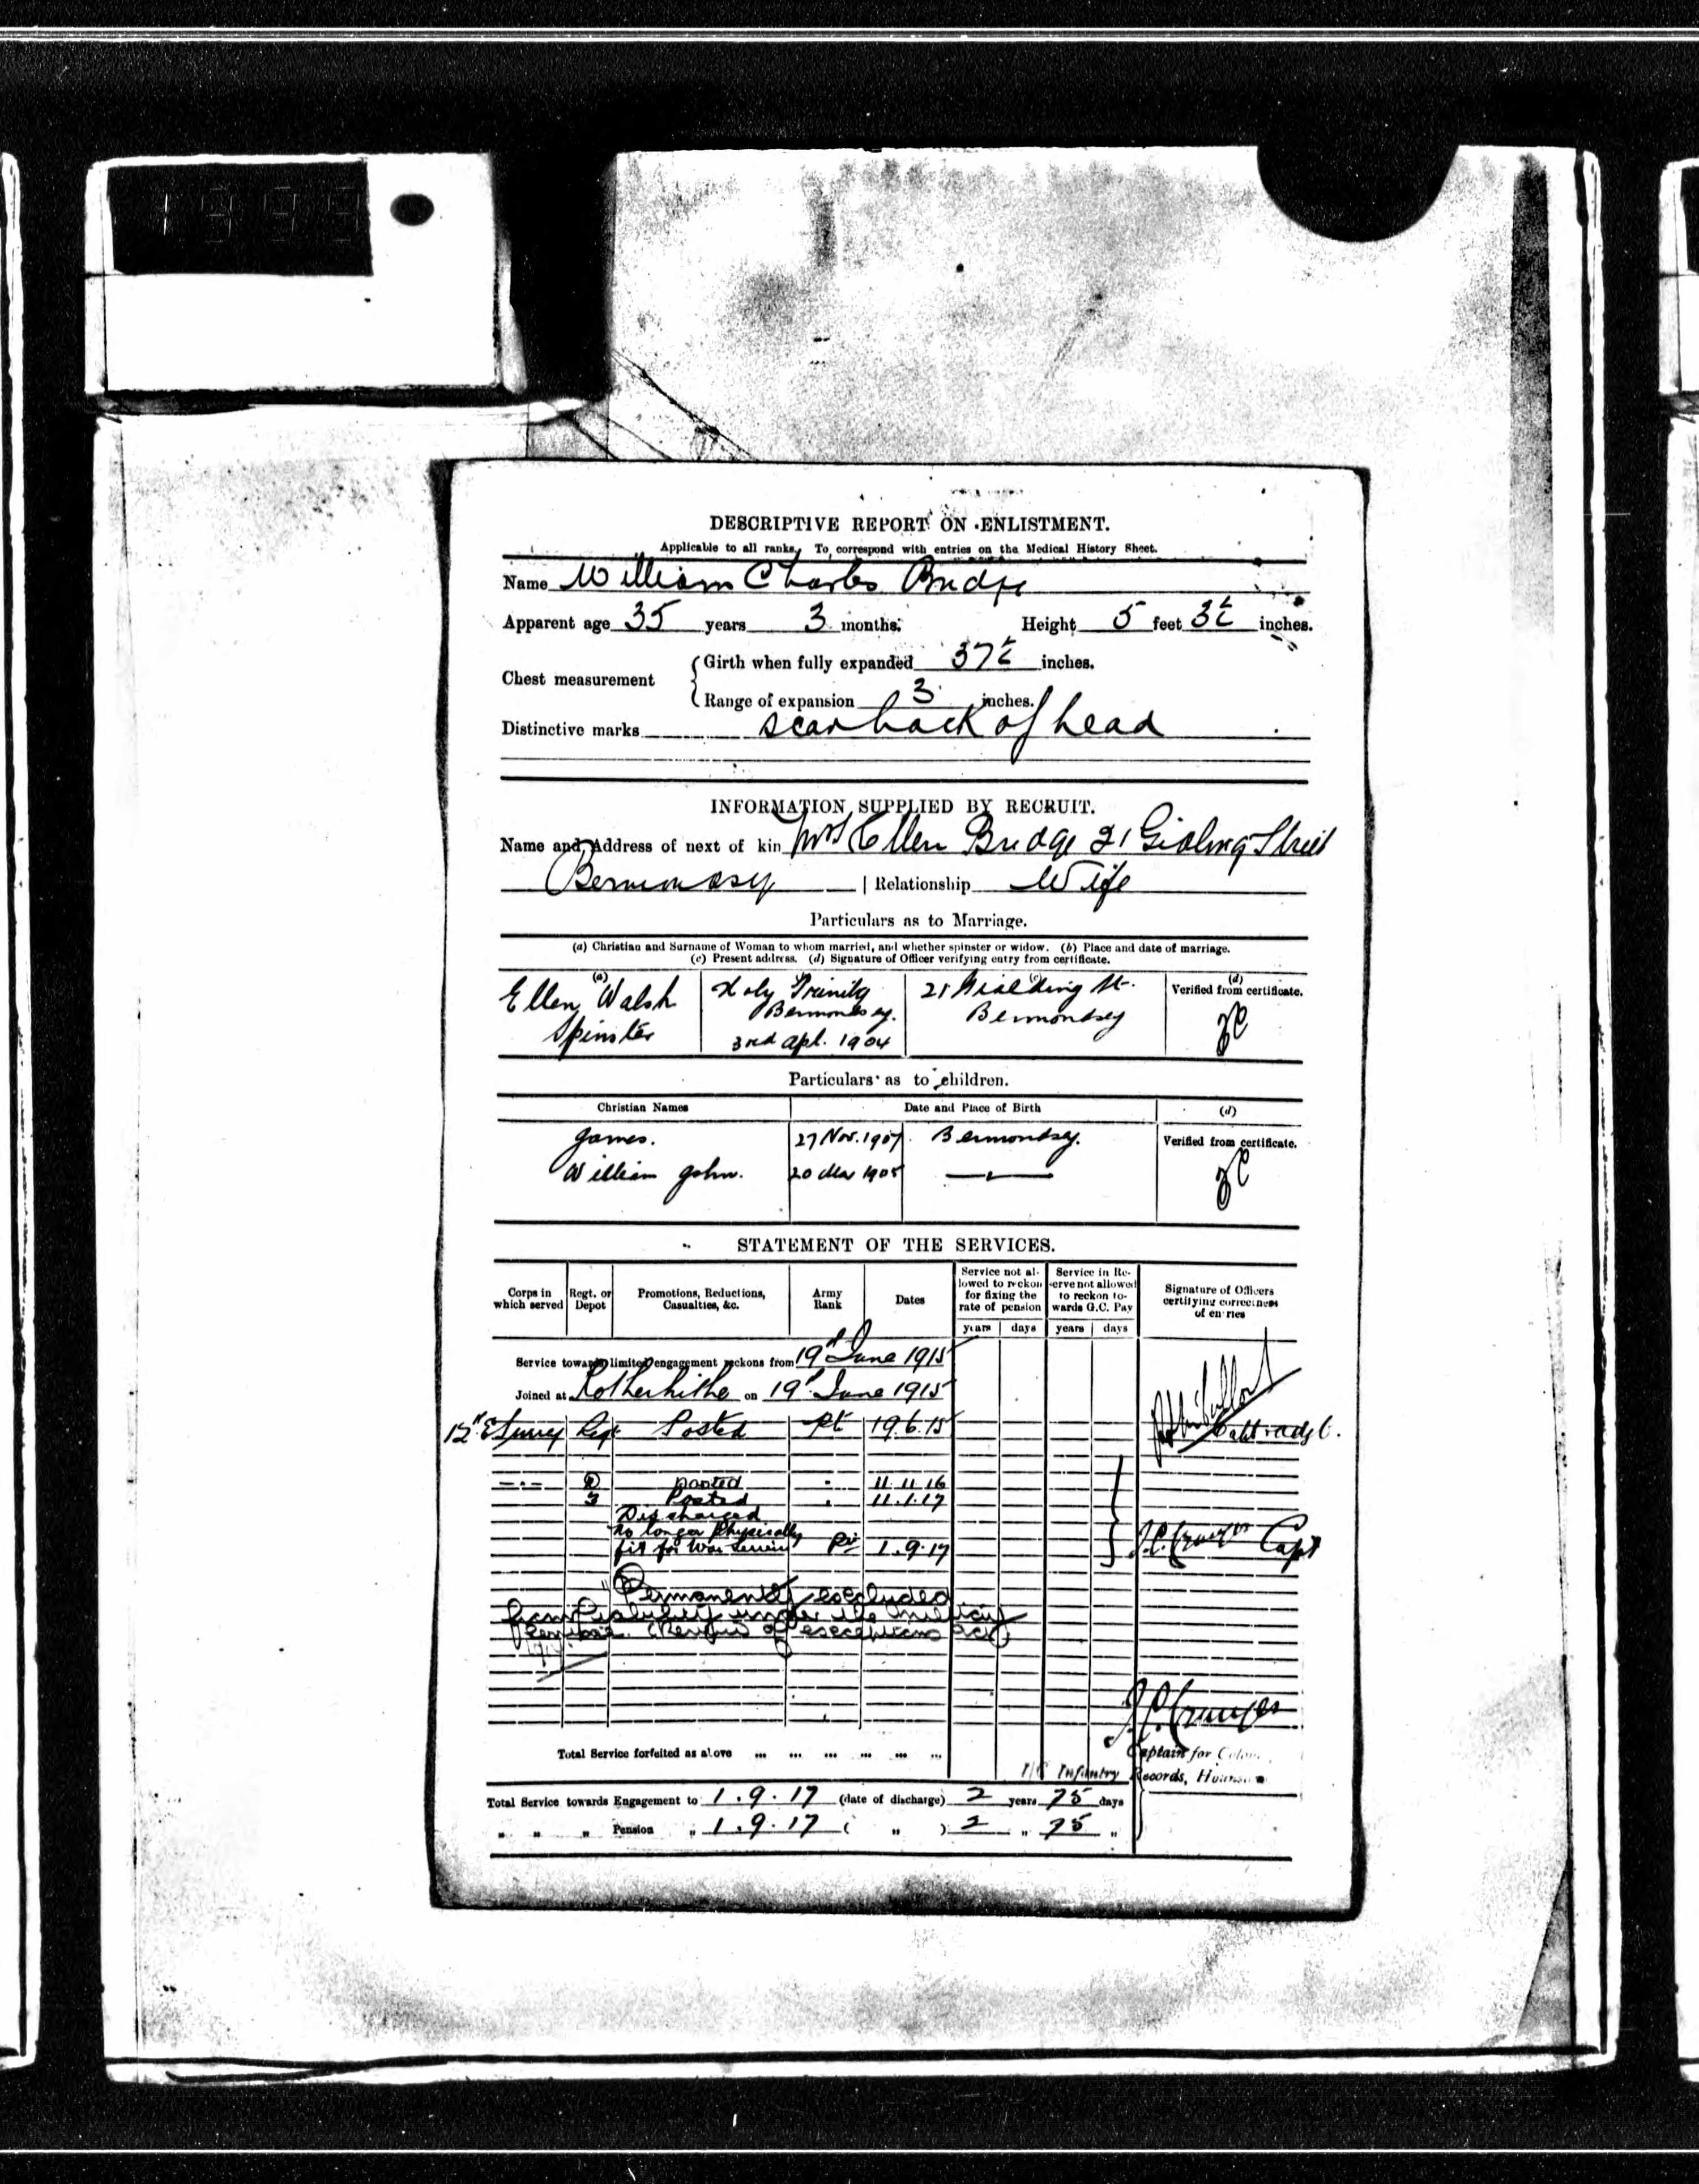 DESCRIPTIVE REPORT ON ENLISTMENT.
Applicable to all ranks. To correspond with entries on the Medical History Sheet.
Name William Charles Bridge
Apparent age 35 years 3 months. Height 5 feet 3½ inches.
Chest measurement
Girth when fully expanded 37½ inches.
Range of expansion 3 inches.
Distinctive marks scar back of head
INFORMATION SUPPLIED BY RECRUIT.
Name and Address of next of kin Mrs Ellen Bridge 21 Street
Relationship Wife
Particulars as to Marriage.
(a) Christian and Surname of Woman to whom married, and whether spinster or widow. (b) Place and date of marriage.
(c) Present address. (d) Signature of Officer verifying entry from certificate.
(a) (c) (d)
Ellen Walsh Holy Trinity 21 St. Verified from certificate.
Spinster Bermondsey. Bermondsey
3rd Apl. 1904
Particulars as to children.
Christian Names Date and Place of Birth (d)
James. 27 Nov. 1907 Bermondsey. Verified from certificate.
William John. 20 1905
STATEMENT OF THE SERVICES.
Corps in which served Regt. or Depot Promotions, Reductions, Casualties, &c. Army Rank Dates Service not allowed to reckon for fixing the rate of pension Service in Reserve not allowed to reckon towards G.C. Pay Signature of Officers certifying correctness of entries
years days years days
Service towards limited engagement reckons from 19th June 1915
Joined at Rotherhithe on 19th June 1915
12th E Surrey Regt Posted Pte 19.6.15
Capt & Adjt.
-.- D posted 11.11.16
3 Posted 11.1.17
Discharged
No longer Physically
fit for War Service Pte 1.9.17 Capt
"Permanently excluded
from liability under the Military
Service (Review of exceptions Act)
Total Service forfeited as above ... ... ... ... ... ...
Captain for
I/C Infantry Records,
Total Service towards Engagement to 1.9.17 (date of discharge) 2 years 75 days
" " " Pension " 1.9.17 ( " ) 2 " 75 "